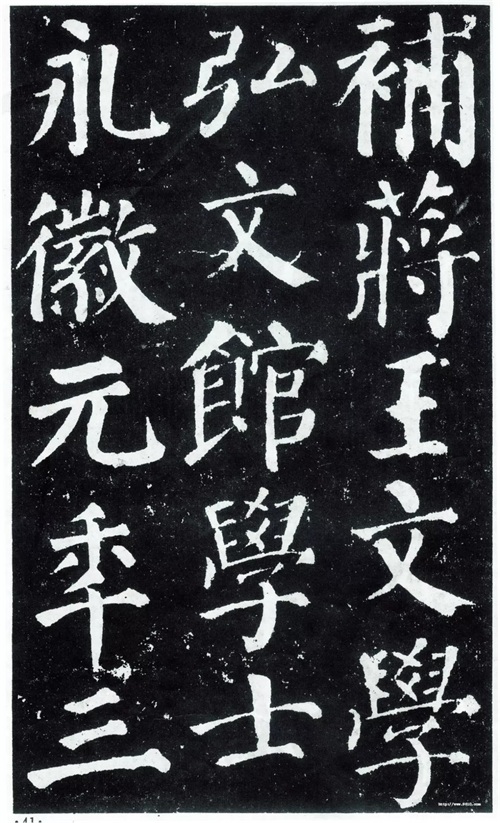 補蔣王文學
弘文館學士
永徽元年三
·41·